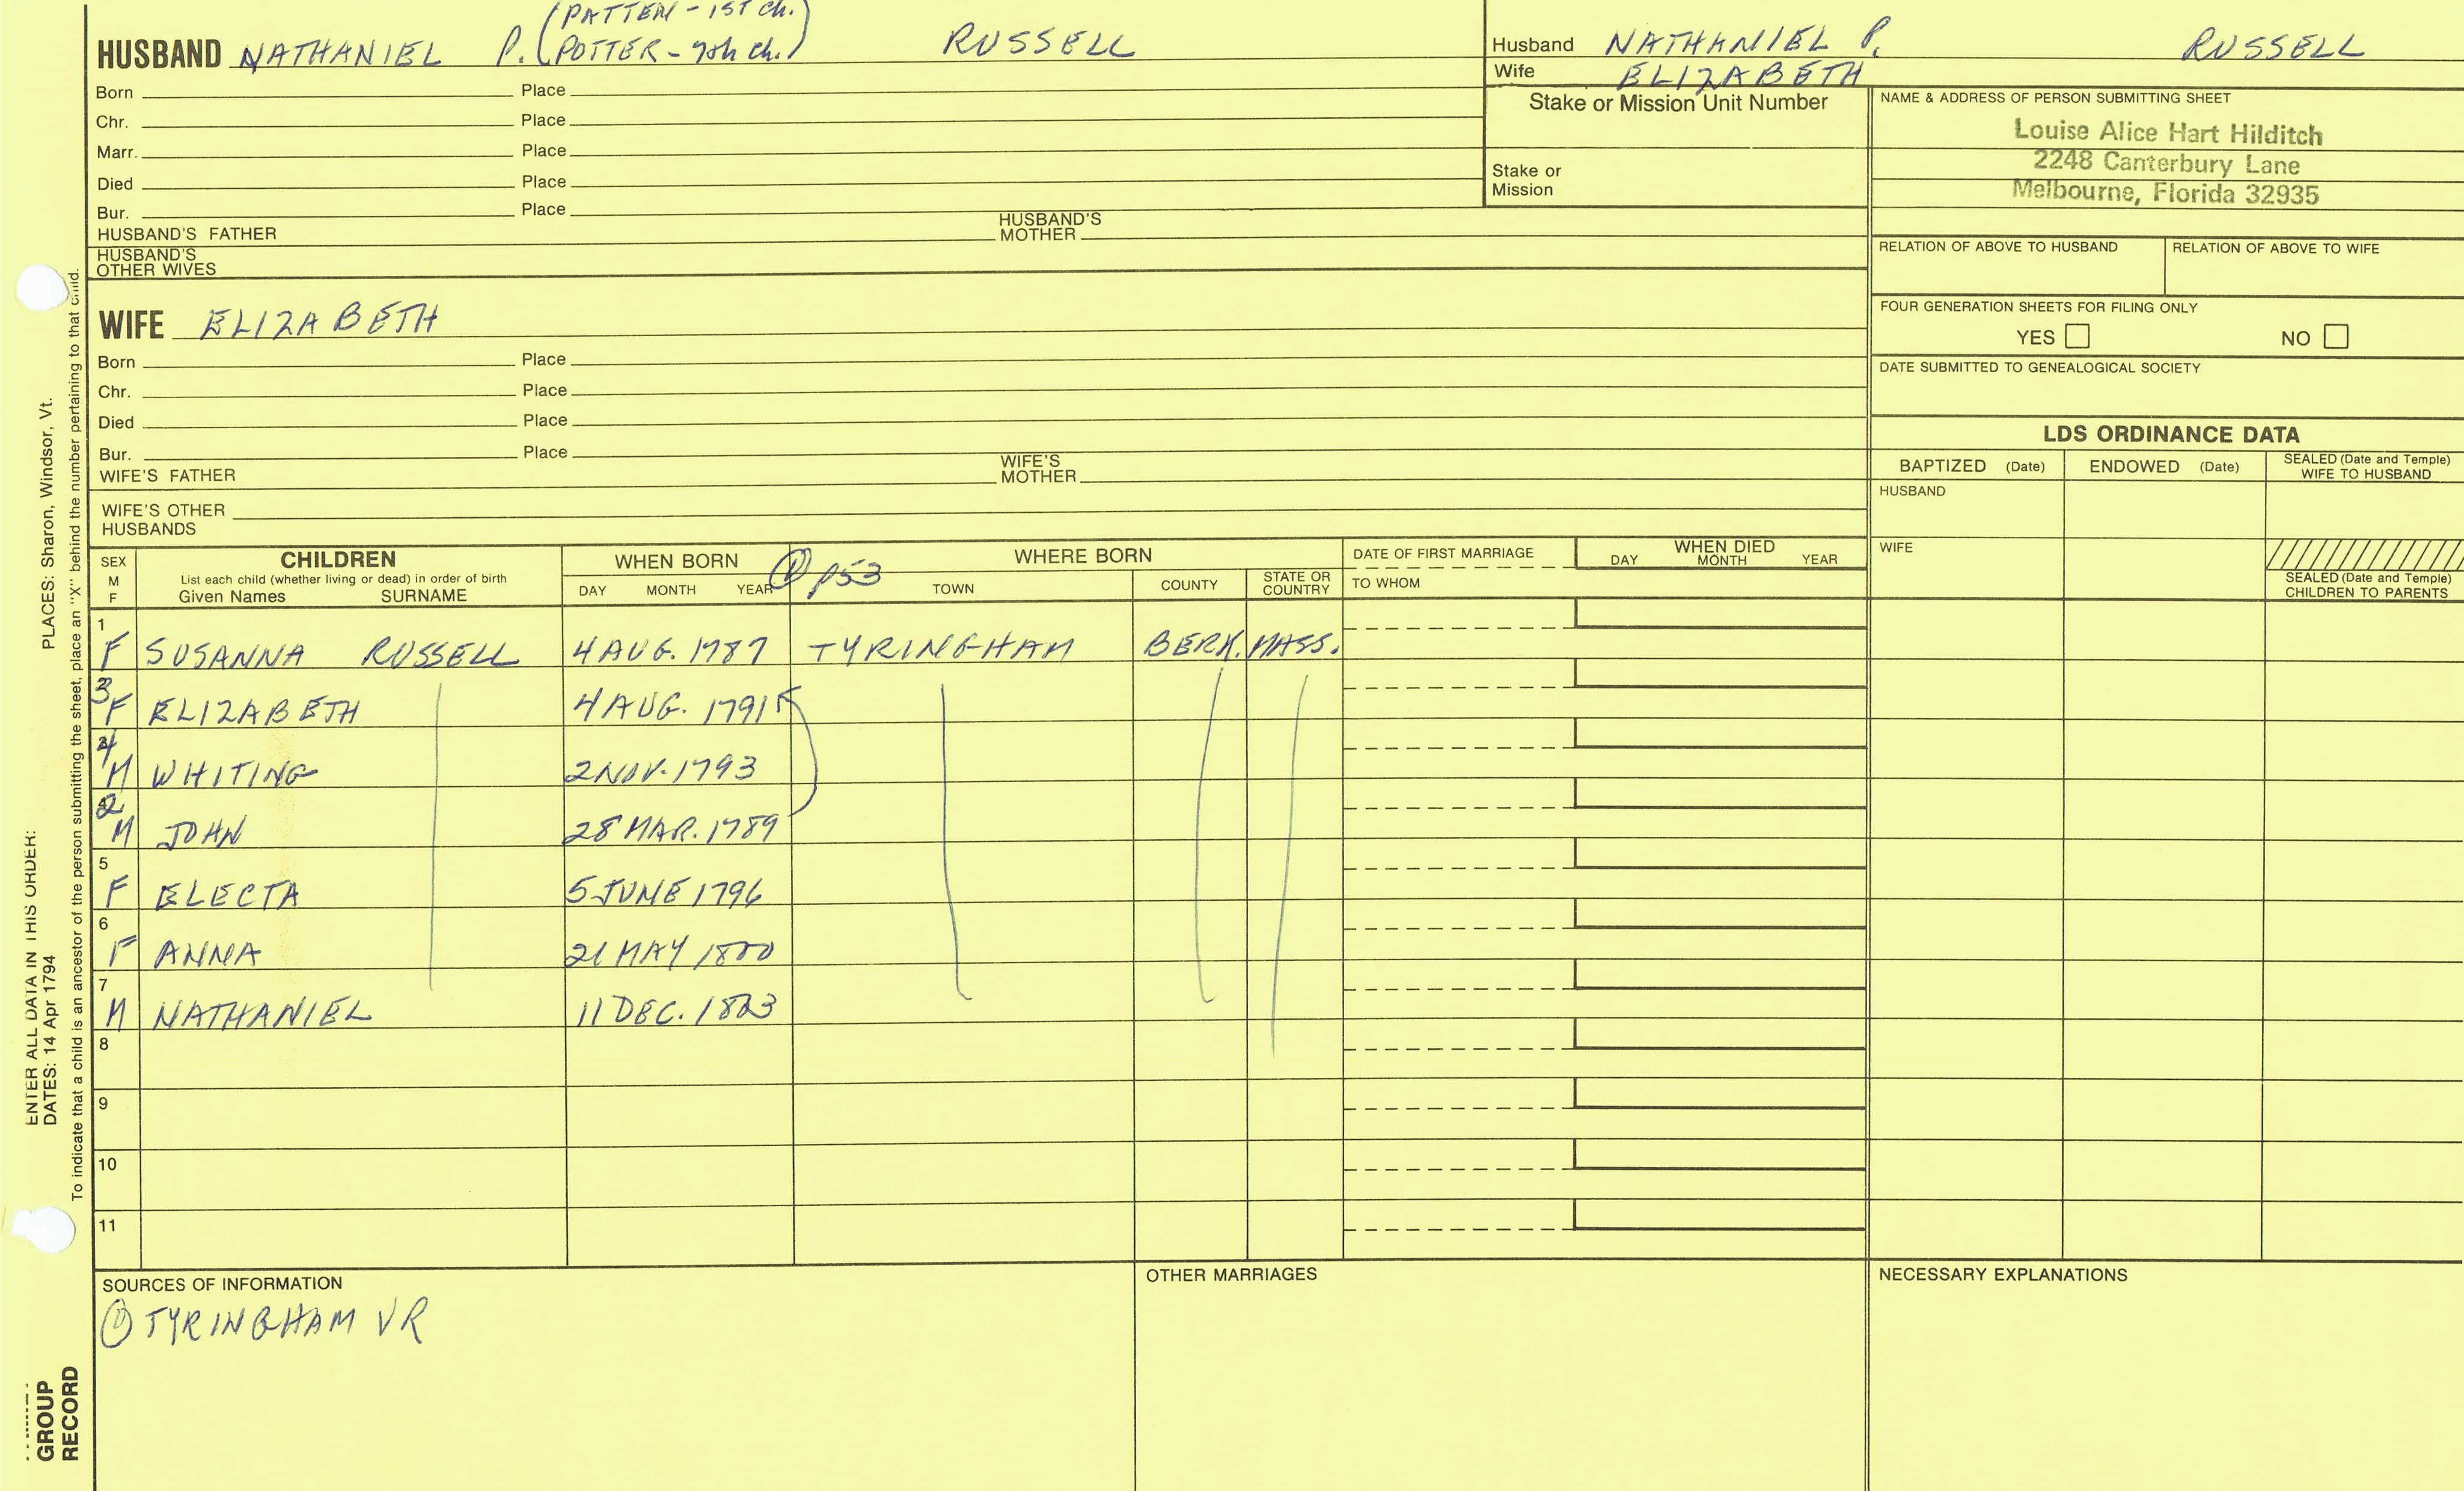 (PATTEN - 1ST Ch.)
HUSBAND NATHANIEL P. (POTTER - 7th Ch.) RUSSELL
Born Place
Chr. Place
Marr. Place
Died Place
Bur. Place
HUSBAND'S FATHER HUSBAND'S MOTHER
HUSBAND'S OTHER WIVES
WIFE ELIZABETH
Born Place
Chr. Place
Died Place
Bur. Place
WIFE'S FATHER WIFE'S MOTHER
WIFE'S OTHER HUSBANDS
Husband NATHANIEL P. RUSSELL
Wife ELIZABETH
Stake or Mission Unit Number
Stake or Mission
NAME & ADDRESS OF PERSON SUBMITTING SHEET
Louise Alice Hart Hilditch
2248 Canterbury Lane
Melbourne, Florida 32935
RELATION OF ABOVE TO HUSBAND RELATION OF ABOVE TO WIFE
FOUR GENERATION SHEETS FOR FILING ONLY
YES NO
DATE SUBMITTED TO GENEALOGICAL SOCIETY
LDS ORDINANCE DATA
BAPTIZED (Date) ENDOWED (Date) SEALED (Date and Temple) WIFE TO HUSBAND
HUSBAND
WIFE
SEALED (Date and Temple) CHILDREN TO PARENTS
SEX M F
CHILDREN
List each child (whether living or dead) in order of birth
Given Names SURNAME
WHEN BORN
DAY MONTH YEAR
① p53
WHERE BORN
TOWN COUNTY STATE OR COUNTRY
DATE OF FIRST MARRIAGE
TO WHOM
WHEN DIED
DAY MONTH YEAR
1 F SUSANNA RUSSELL 4 AUG. 1787 TYRINGHAM BERK. MASS.
3 F ELIZABETH 4 AUG. 1791
4 M WHITING 2 NOV. 1793
2 M JOHN 28 MAR. 1789
5 F ELECTA 5 JUNE 1796
6 F ANNA 21 MAY 1800
7 M NATHANIEL 11 DEC. 1803
8
9
10
11
SOURCES OF INFORMATION
① TYRINGHAM VR
OTHER MARRIAGES
NECESSARY EXPLANATIONS
PLACES: Sharon, Windsor, Vt.
ENTER ALL DATA IN THIS ORDER:
DATES: 14 Apr 1794
To indicate that a child is an ancestor of the person submitting the sheet, place an "X" behind the number pertaining to that child.
GROUP
RECORD